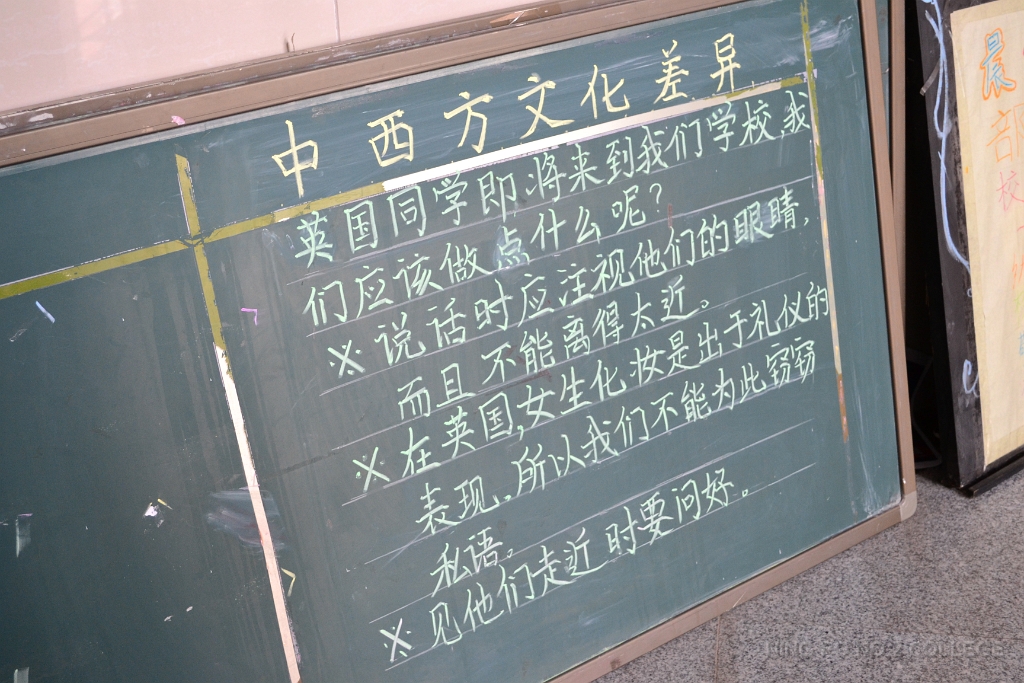 中西方文化差异
英国同学即将来到我们学校,我
们应该做点什么呢?
※说话时应注视他们的眼睛,
而且不能离得太近。
※在英国,女生化妆是出于礼仪的
表现,所以我们不能为此窃窃
私语。
※见他们走近时要问好。
晨
部
校